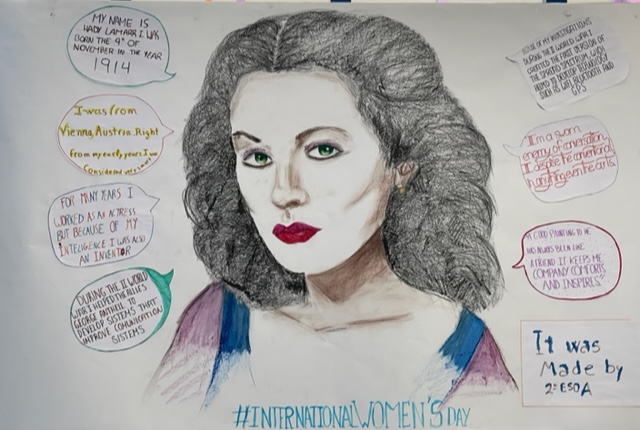 MY NAME IS
HADY LAMARR I WAS
BORN THE 9º OF
NOVEMBER IN THE YEAR
1914
I was from
Vienna, Austria. Right
from my early years I was
considered
FOR MANY YEARS I
WORKED AS AN ACTRESS
BUT BECAUSE OF MY
INTELIGENCE I WAS ALSO
AN INVENTOR
DURING THE II WORLD
WAR I HELPED THE ALLIES
GEORGE ANTHEIL TO
DEVELOP SISTEMS THAT
IMPROVE COMUNICATION
SISTEMS
OF MY INVESTIGATIONS
DURING THE II WORLD WAR I
CREATED THE FIRST VERSION OF
THE SPREAD SPECTRUM, WHICH
HELPED TO DEVELOP TECHNOLOGY
SUCH AS WIFI, BLUETOOTH AND
GPS
I'm a sworn
enemy of conversation,
I despise the conventional
in anything even the arts.
A GOOD PAINTING TO ME
HAS ALWAYS BEEN LIKE
A FRIEND. IT KEEPS ME
COMPANY COMFORTS
AND INSPIRES."
It was
Made by
2º ESO A
#INTERNATIONALWOMEN'S DAY